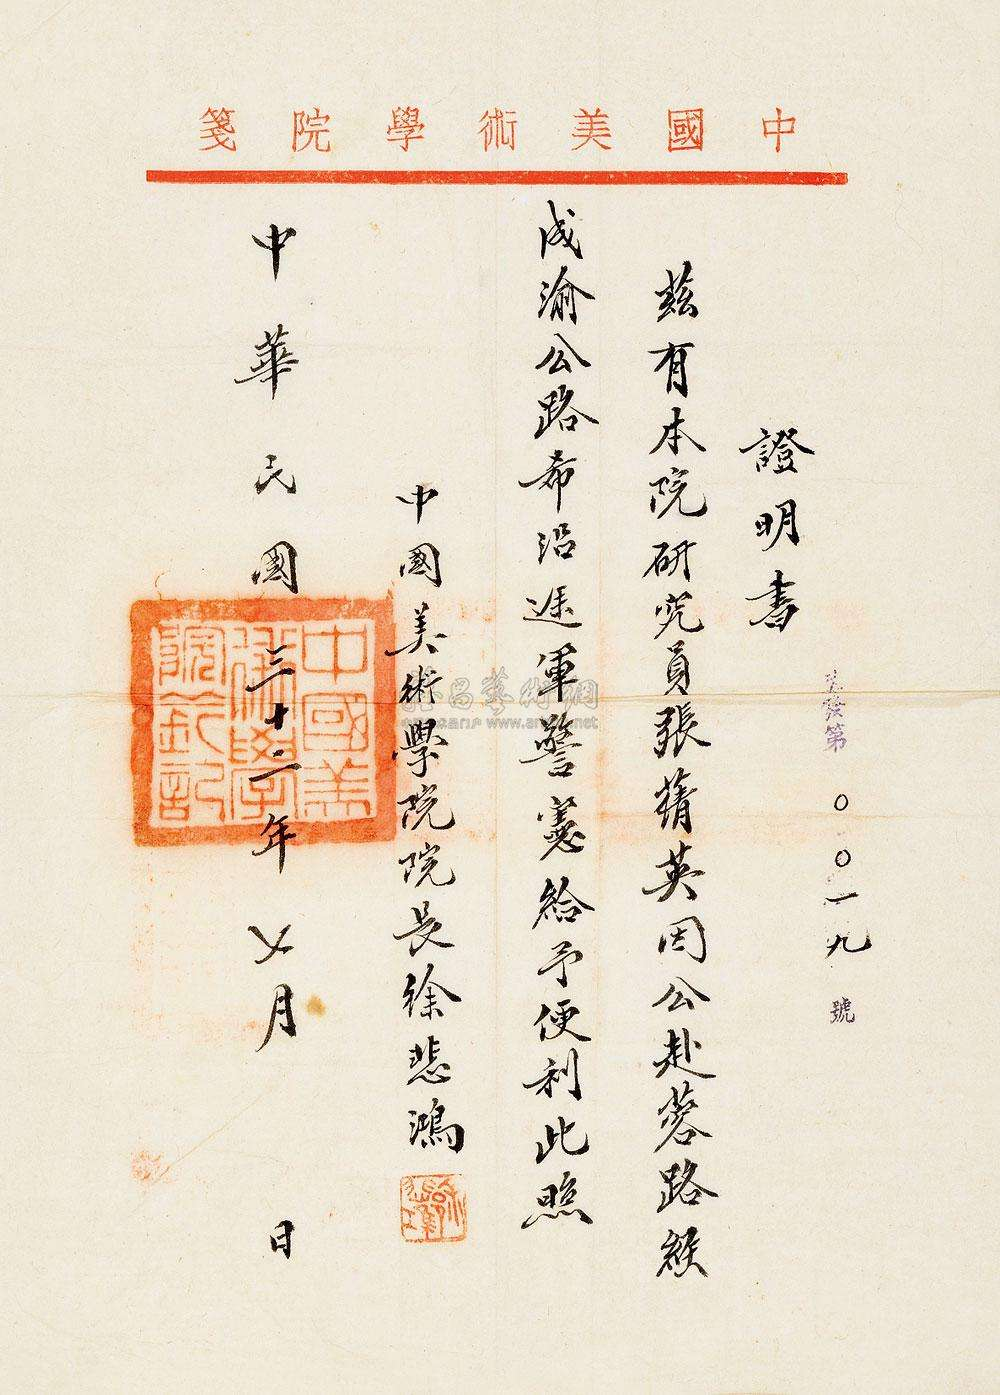 中國美術學院箋
發第〇〇一九號
證明書
茲有本院研究員張蒨英因公赴蓉路經
成渝公路希沿途軍警憲給予便利此照
中國美術學院院長徐悲鴻
中華民國三十二年七月 日
中國美術學院鈐記